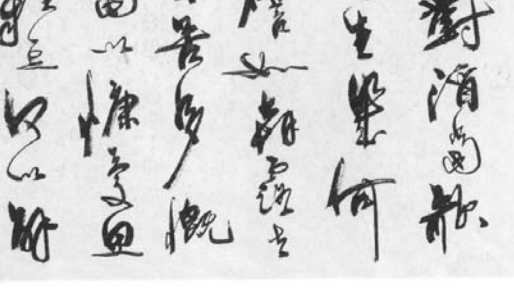 對酒當歌
生幾何
譬如朝露去
苦多慨
當以慷憂思
難忘何以解